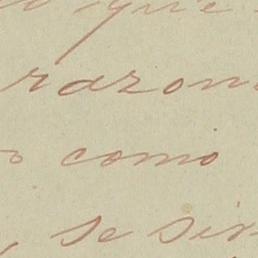 que
razon
como
se sir